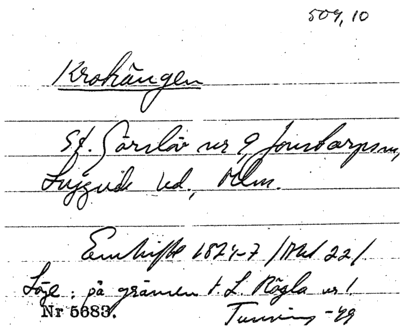 509,10
Krokängen
St. Görslöv nr 9, Jonstorps m,
Luggude hd., Mlm.
Enskifte 1824-7 /Akt 22/
Läge: på gränsen t. L. Rögla nr 1
Nr 5683. Tunving -49